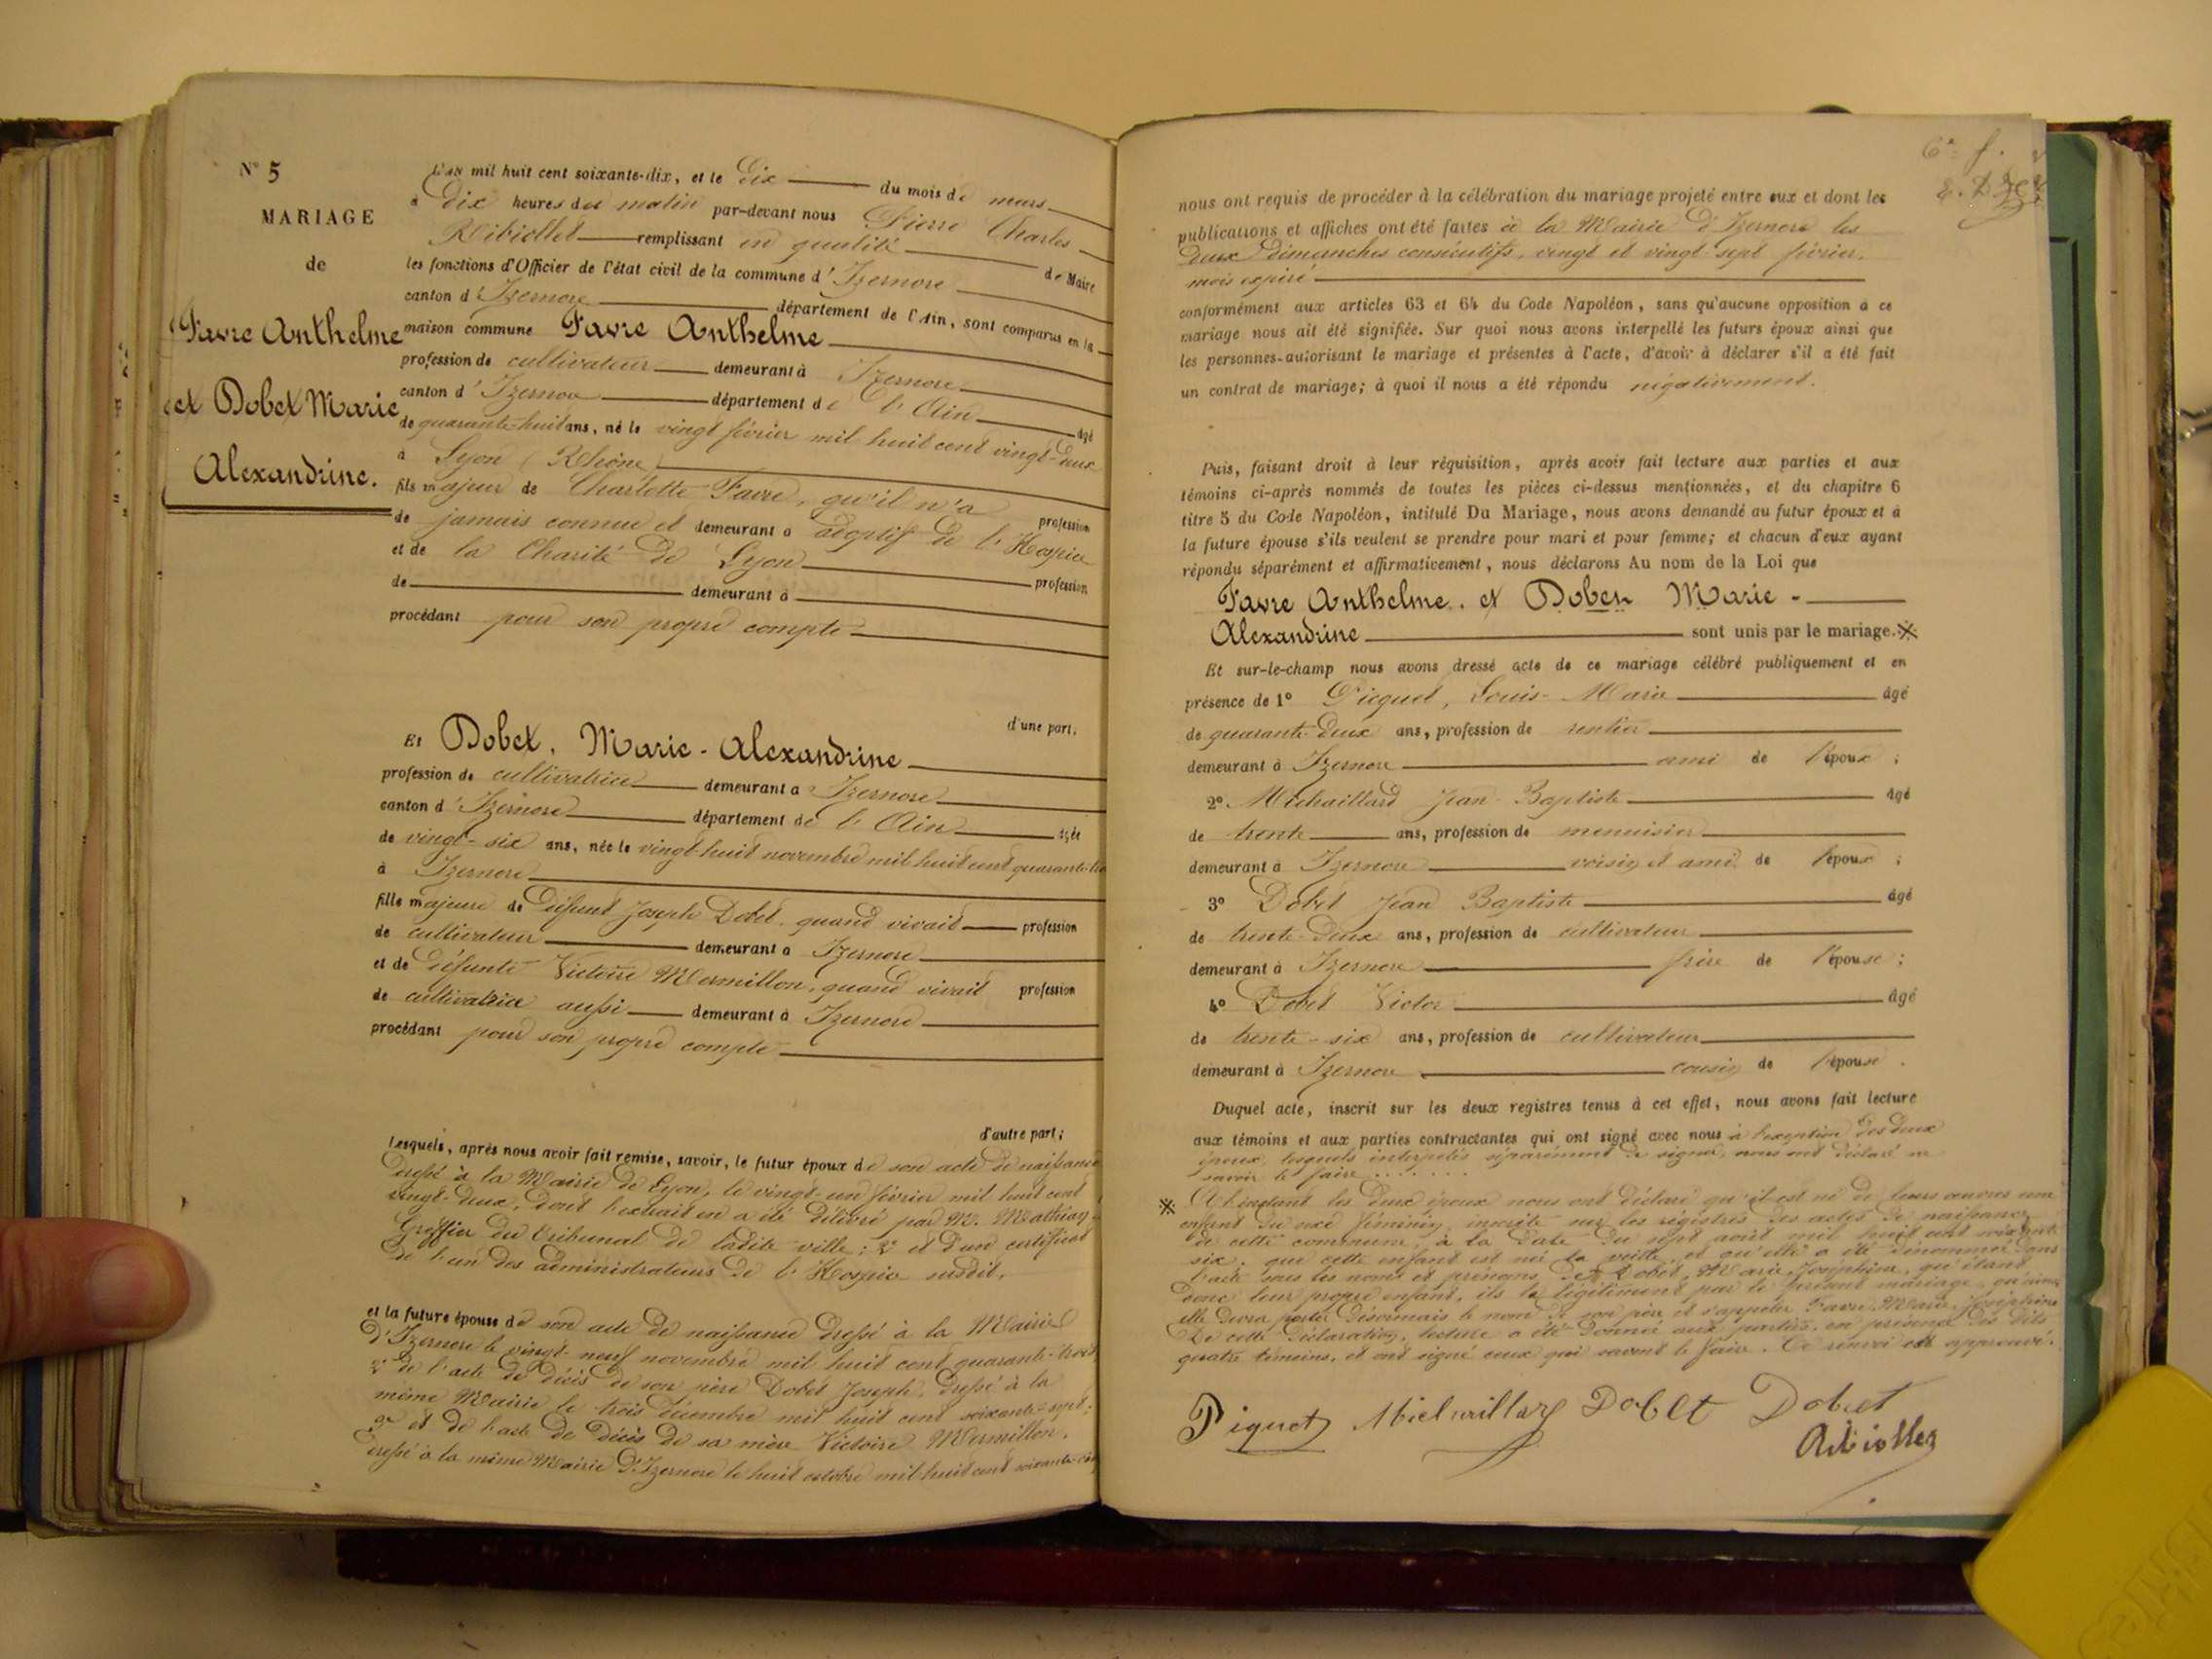 N° 5
MARIAGE
de
Favre Anthelme
et Dobet Marie
Alexandrine.
L'AN mil huit cent soixante-dix, et le dix du mois de mars
à dix heures du matin par-devant nous Pierre Charles
Ribiollet remplissant en qualité de Maire
les fonctions d'Officier de l'état civil de la commune d'Izernore
canton d'Izernore département de l'Ain, sont comparus en la
maison commune Favre Anthelme
profession de cultivateur demeurant à Izernore
canton d'Izernore département de l'Ain âgé
de quarante-huit ans, né le vingt février mil huit cent vingt-deux
à Lyon (Rhône)
fils majeur de Charlotte Favre, qu'il n'a profession
de jamais connue et demeurant à adoptif de l'Hospice
et de la Charité de Lyon profession
de demeurant à
procédant pour son propre compte
d'une part,
Et Dobet, Marie-Alexandrine
profession de cultivatrice demeurant à Izernore
canton d'Izernore département de l'Ain âgée
de vingt-six ans, née le vingt-huit novembre mil huit cent quarante-
à Izernore
fille majeure de défunt Joseph Dobet, quand vivait profession
de cultivateur demeurant à Izernore
et de défunte Victoire Mermillon, quand vivait profession
de cultivatrice aussi demeurant à Izernore
procédant pour son propre compte
d'autre part;
Lesquels, après nous avoir fait remise, savoir, le futur époux de son acte de naissance
dressé à la Mairie de Lyon, le vingt-un février mil huit cent
vingt-deux, dont l'extrait en a été délivré par M. Mathian
Greffier du Tribunal de ladite ville; 2° et d'un certificat
de l'un des administrateurs de l'Hospice susdit,
et la future épouse de son acte de naissance dressé à la Mairie
d'Izernore le vingt-neuf novembre mil huit cent quarante-trois,
2° de l'acte de décès de son père Dobet Joseph, dressé à la
même Mairie le trois décembre mil huit cent soixante-sept;
3° et de l'acte de décès de sa mère Victoire Mermillon,
dressé à la même Mairie d'Izernore le huit octobre mil huit cent soixante-
6e f.
nous ont requis de procéder à la célébration du mariage projeté entre eux et dont les
publications et affiches ont été faites à la Mairie d'Izernore les
deux dimanches consécutifs, vingt et vingt-sept février,
mois expiré
conformément aux articles 63 et 64 du Code Napoléon, sans qu'aucune opposition à ce
mariage nous ait été signifiée. Sur quoi nous avons interpellé les futurs époux ainsi que
les personnes autorisant le mariage et présentes à l'acte, d'avoir à déclarer s'il a été fait
un contrat de mariage; à quoi il nous a été répondu négativement.
Puis, faisant droit à leur réquisition, après avoir fait lecture aux parties et aux
témoins ci-après nommés de toutes les pièces ci-dessus mentionnées, et du chapitre 6
titre 5 du Code Napoléon, intitulé Du Mariage, nous avons demandé au futur époux et à
la future épouse s'ils veulent se prendre pour mari et pour femme; et chacun d'eux ayant
répondu séparément et affirmativement, nous déclarons Au nom de la Loi que
Favre Anthelme. et Dobet Marie -
Alexandrine sont unis par le mariage.※
Et sur-le-champ nous avons dressé acte de ce mariage célébré publiquement et en
présence de 1° Picquet, Louis-Marie âgé
de quarante-deux ans, profession de rentier
demeurant à Izernore ami de l'époux;
2° Michaillard Jean-Baptiste âgé
de trente ans, profession de menuisier
demeurant à Izernore voisin et ami de l'époux;
3° Dobet Jean Baptiste âgé
de trente-deux ans, profession de cultivateur
demeurant à Izernore frère de l'épouse;
4° Dobet Victor âgé
de trente-six ans, profession de cultivateur
demeurant à Izernore cousin de l'épouse.
Duquel acte, inscrit sur les deux registres tenus à cet effet, nous avons fait lecture
aux témoins et aux parties contractantes qui ont signé avec nous à l'exception des deux
époux, lesquels interpellés séparément de signer, nous ont déclaré ne
savoir le faire
※ A l'instant les deux époux nous ont déclaré qu'il est né de leurs œuvres une
enfant du sexe féminin, inscrite sur les régistres des actes de naissance
de cette commune, à la date du sept août mil huit cent soixante
six; que cette enfant est née la veille, et qu'elle a été dénommée dans
l'acte sous les noms et prénoms de Dobet, Marie, Joséphine, qu'étant
donc leur propre enfant, ils la légitiment par le présent mariage, qu'ainsi
elle devra porter désormais le nom de son père et s'appeler Favre, Marie, Joséphine
De cette déclaration, lecture a été donnée aux parties, en présence des dits
quatre témoins, et ont signé ceux qui savent le faire. Ce renvoi est approuvé.
Piquet Michaillard Dobet Dobet
Ribiollet